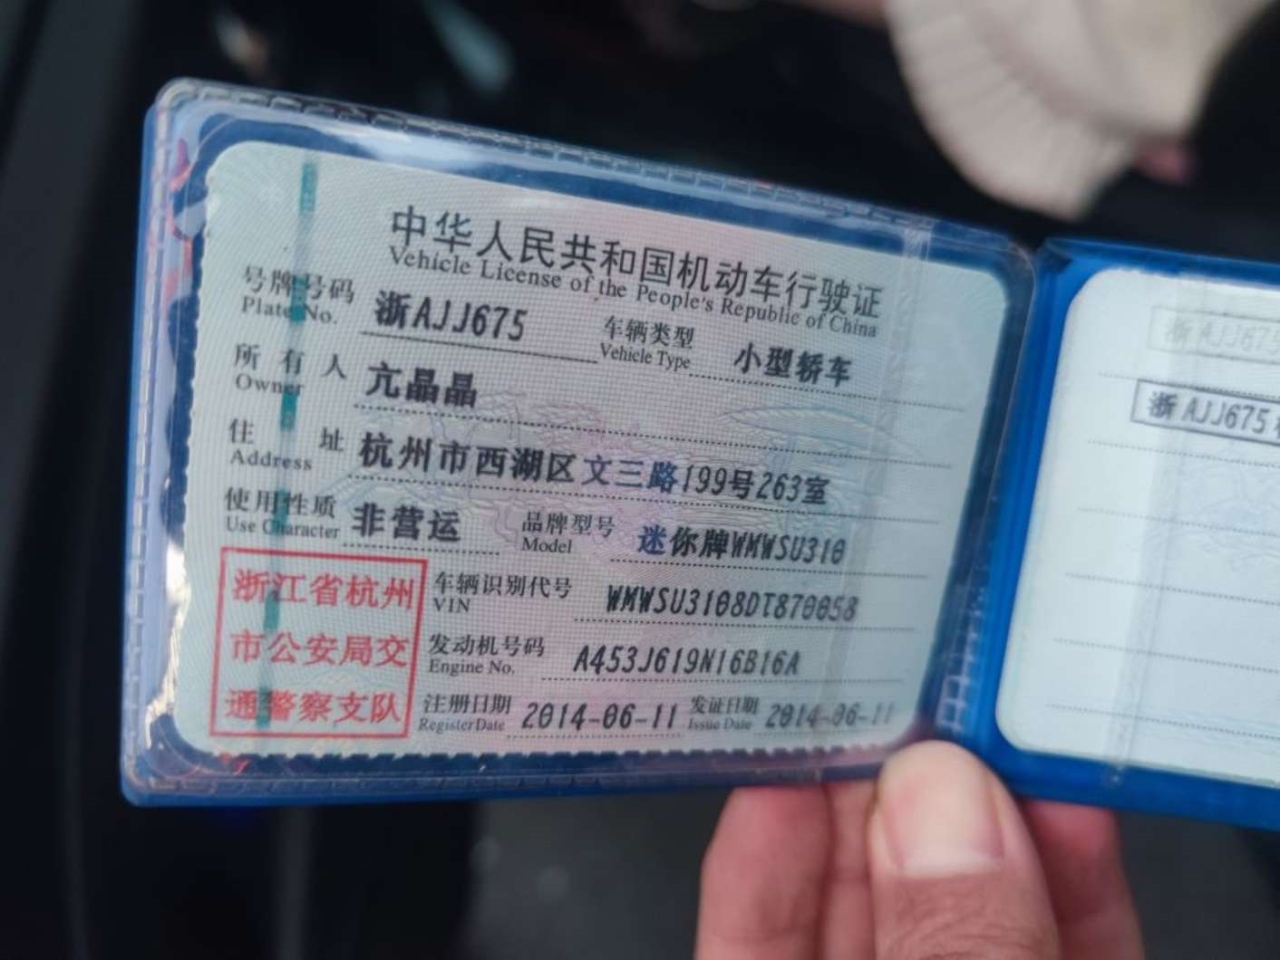 中华人民共和国机动车行驶证
Vehicle License of the People's Republic of China
号牌号码 浙AJJ675 车辆类型 小型轿车
Plate No. Vehicle Type
所有人 亢晶晶
Owner
住址 杭州市西湖区文三路199号263室
Address
使用性质 非营运 品牌型号 迷你牌WMWSU310
Use Character Model
浙江省杭州
市公安局交
通警察支队
车辆识别代号 WMWSU3108DT870058
VIN
发动机号码 A453J619N16B16A
Engine No.
注册日期 2014-06-11 发证日期 2014-06-11
Register Date Issue Date
浙AJJ675
浙AJJ675